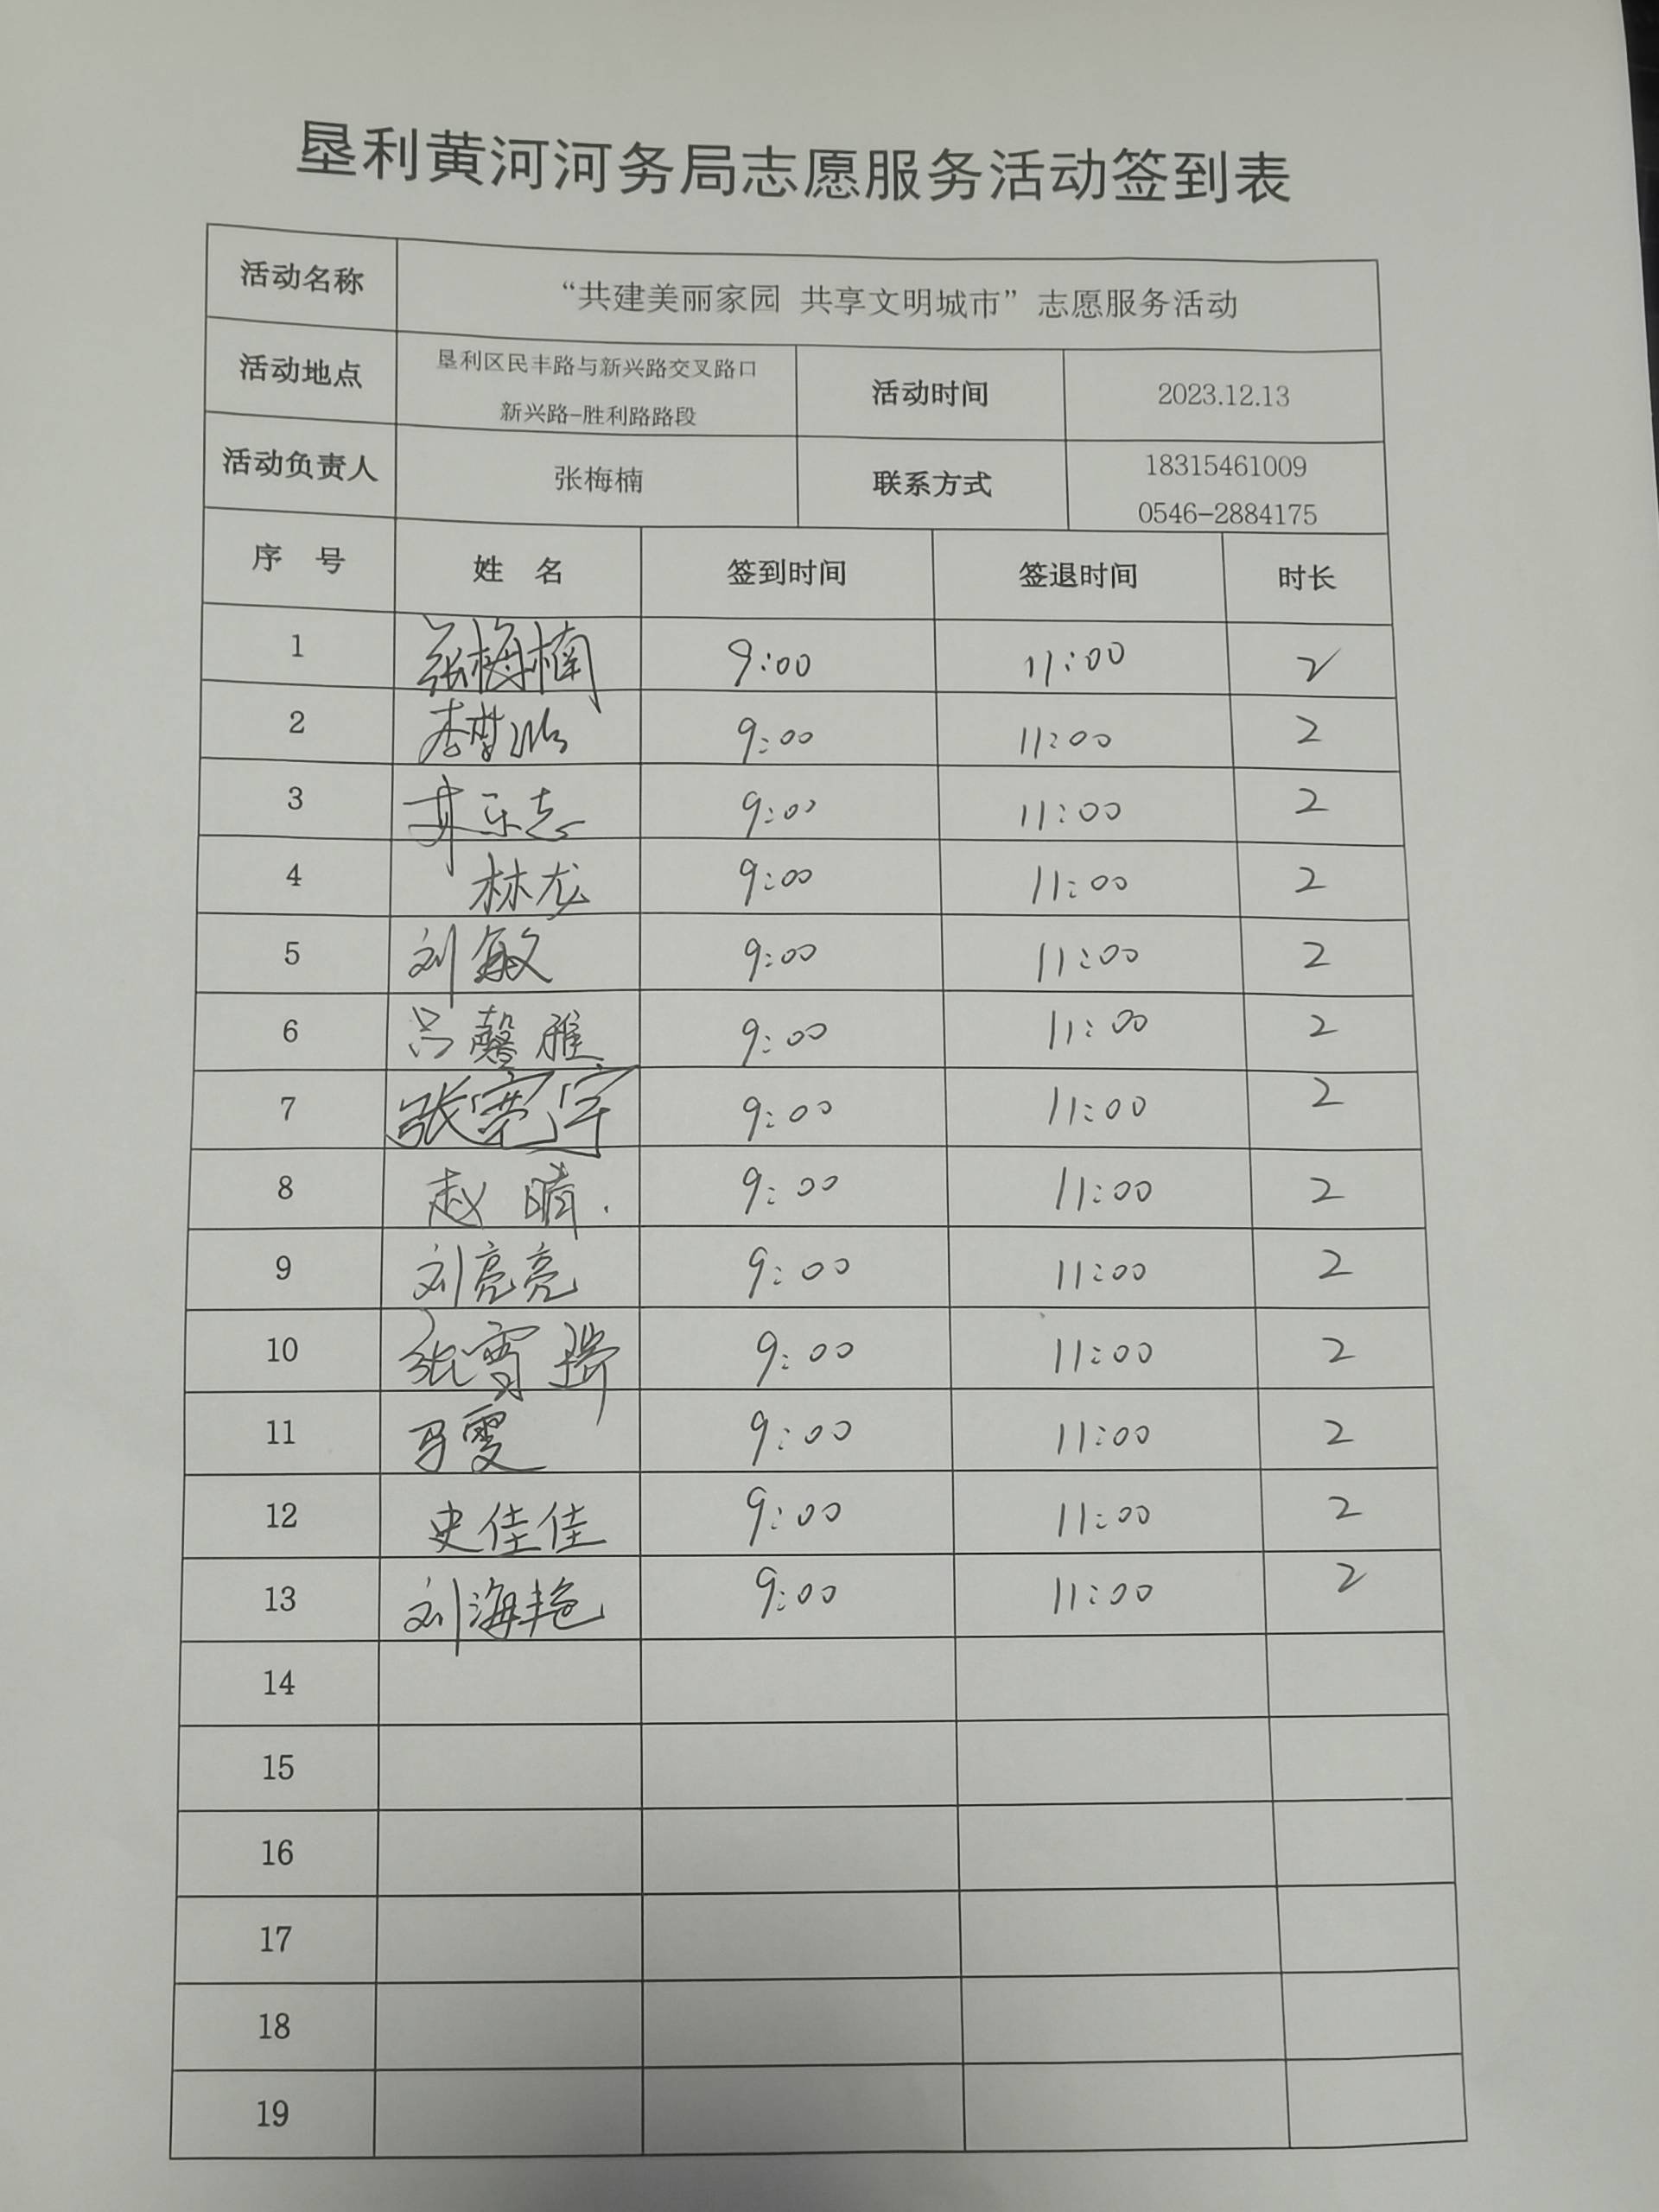 垦利黄河河务局志愿服务活动签到表
活动名称 “共建美丽家园 共享文明城市”志愿服务活动
活动地点 垦利区民丰路与新兴路交叉路口 新兴路-胜利路路段 活动时间 2023.12.13
活动负责人 张梅楠 联系方式 18315461009 0546-2884175
序 号 姓 名 签到时间 签退时间 时长
1 张梅楠 9:00 11:00 2
2 李 9:00 11:00 2
3 9:00 11:00 2
4 林龙 9:00 11:00 2
5 刘敏 9:00 11:00 2
6 吕馨雅 9:00 11:00 2
7 张宽宇 9:00 11:00 2
8 赵晴 9:00 11:00 2
9 刘亮亮 9:00 11:00 2
10 张雪 9:00 11:00 2
11 马雯 9:00 11:00 2
12 史佳佳 9:00 11:00 2
13 刘海艳 9:00 11:00 2
14
15
16
17
18
19